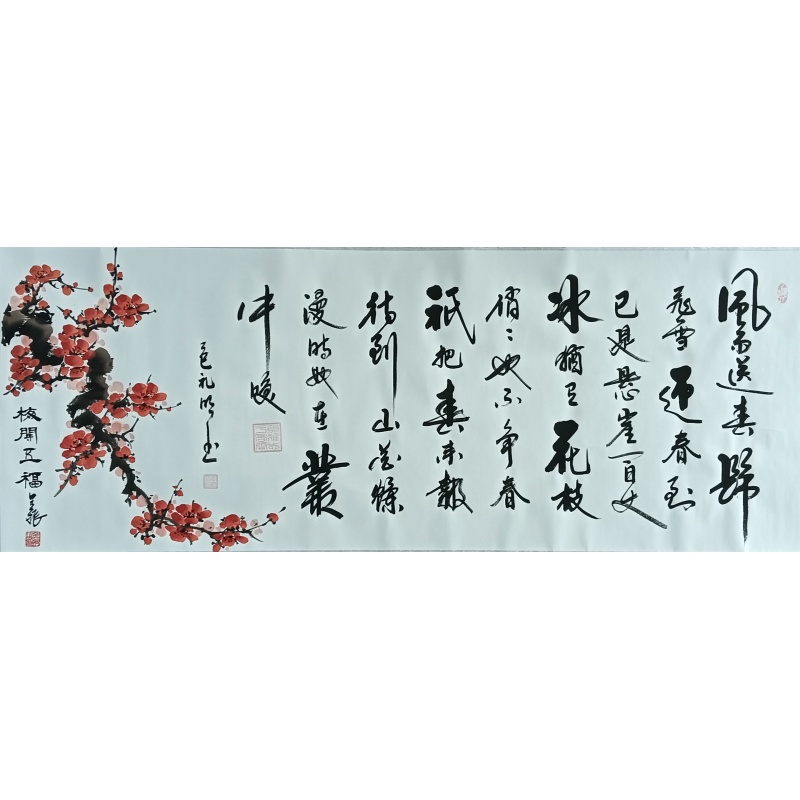 風雨送春歸
飛雪迎春到
已是懸崖百丈
冰猶有花枝
俏〻也不爭春
祇把春來報
待到山花爛
漫時她在叢
中咲
梅開五福